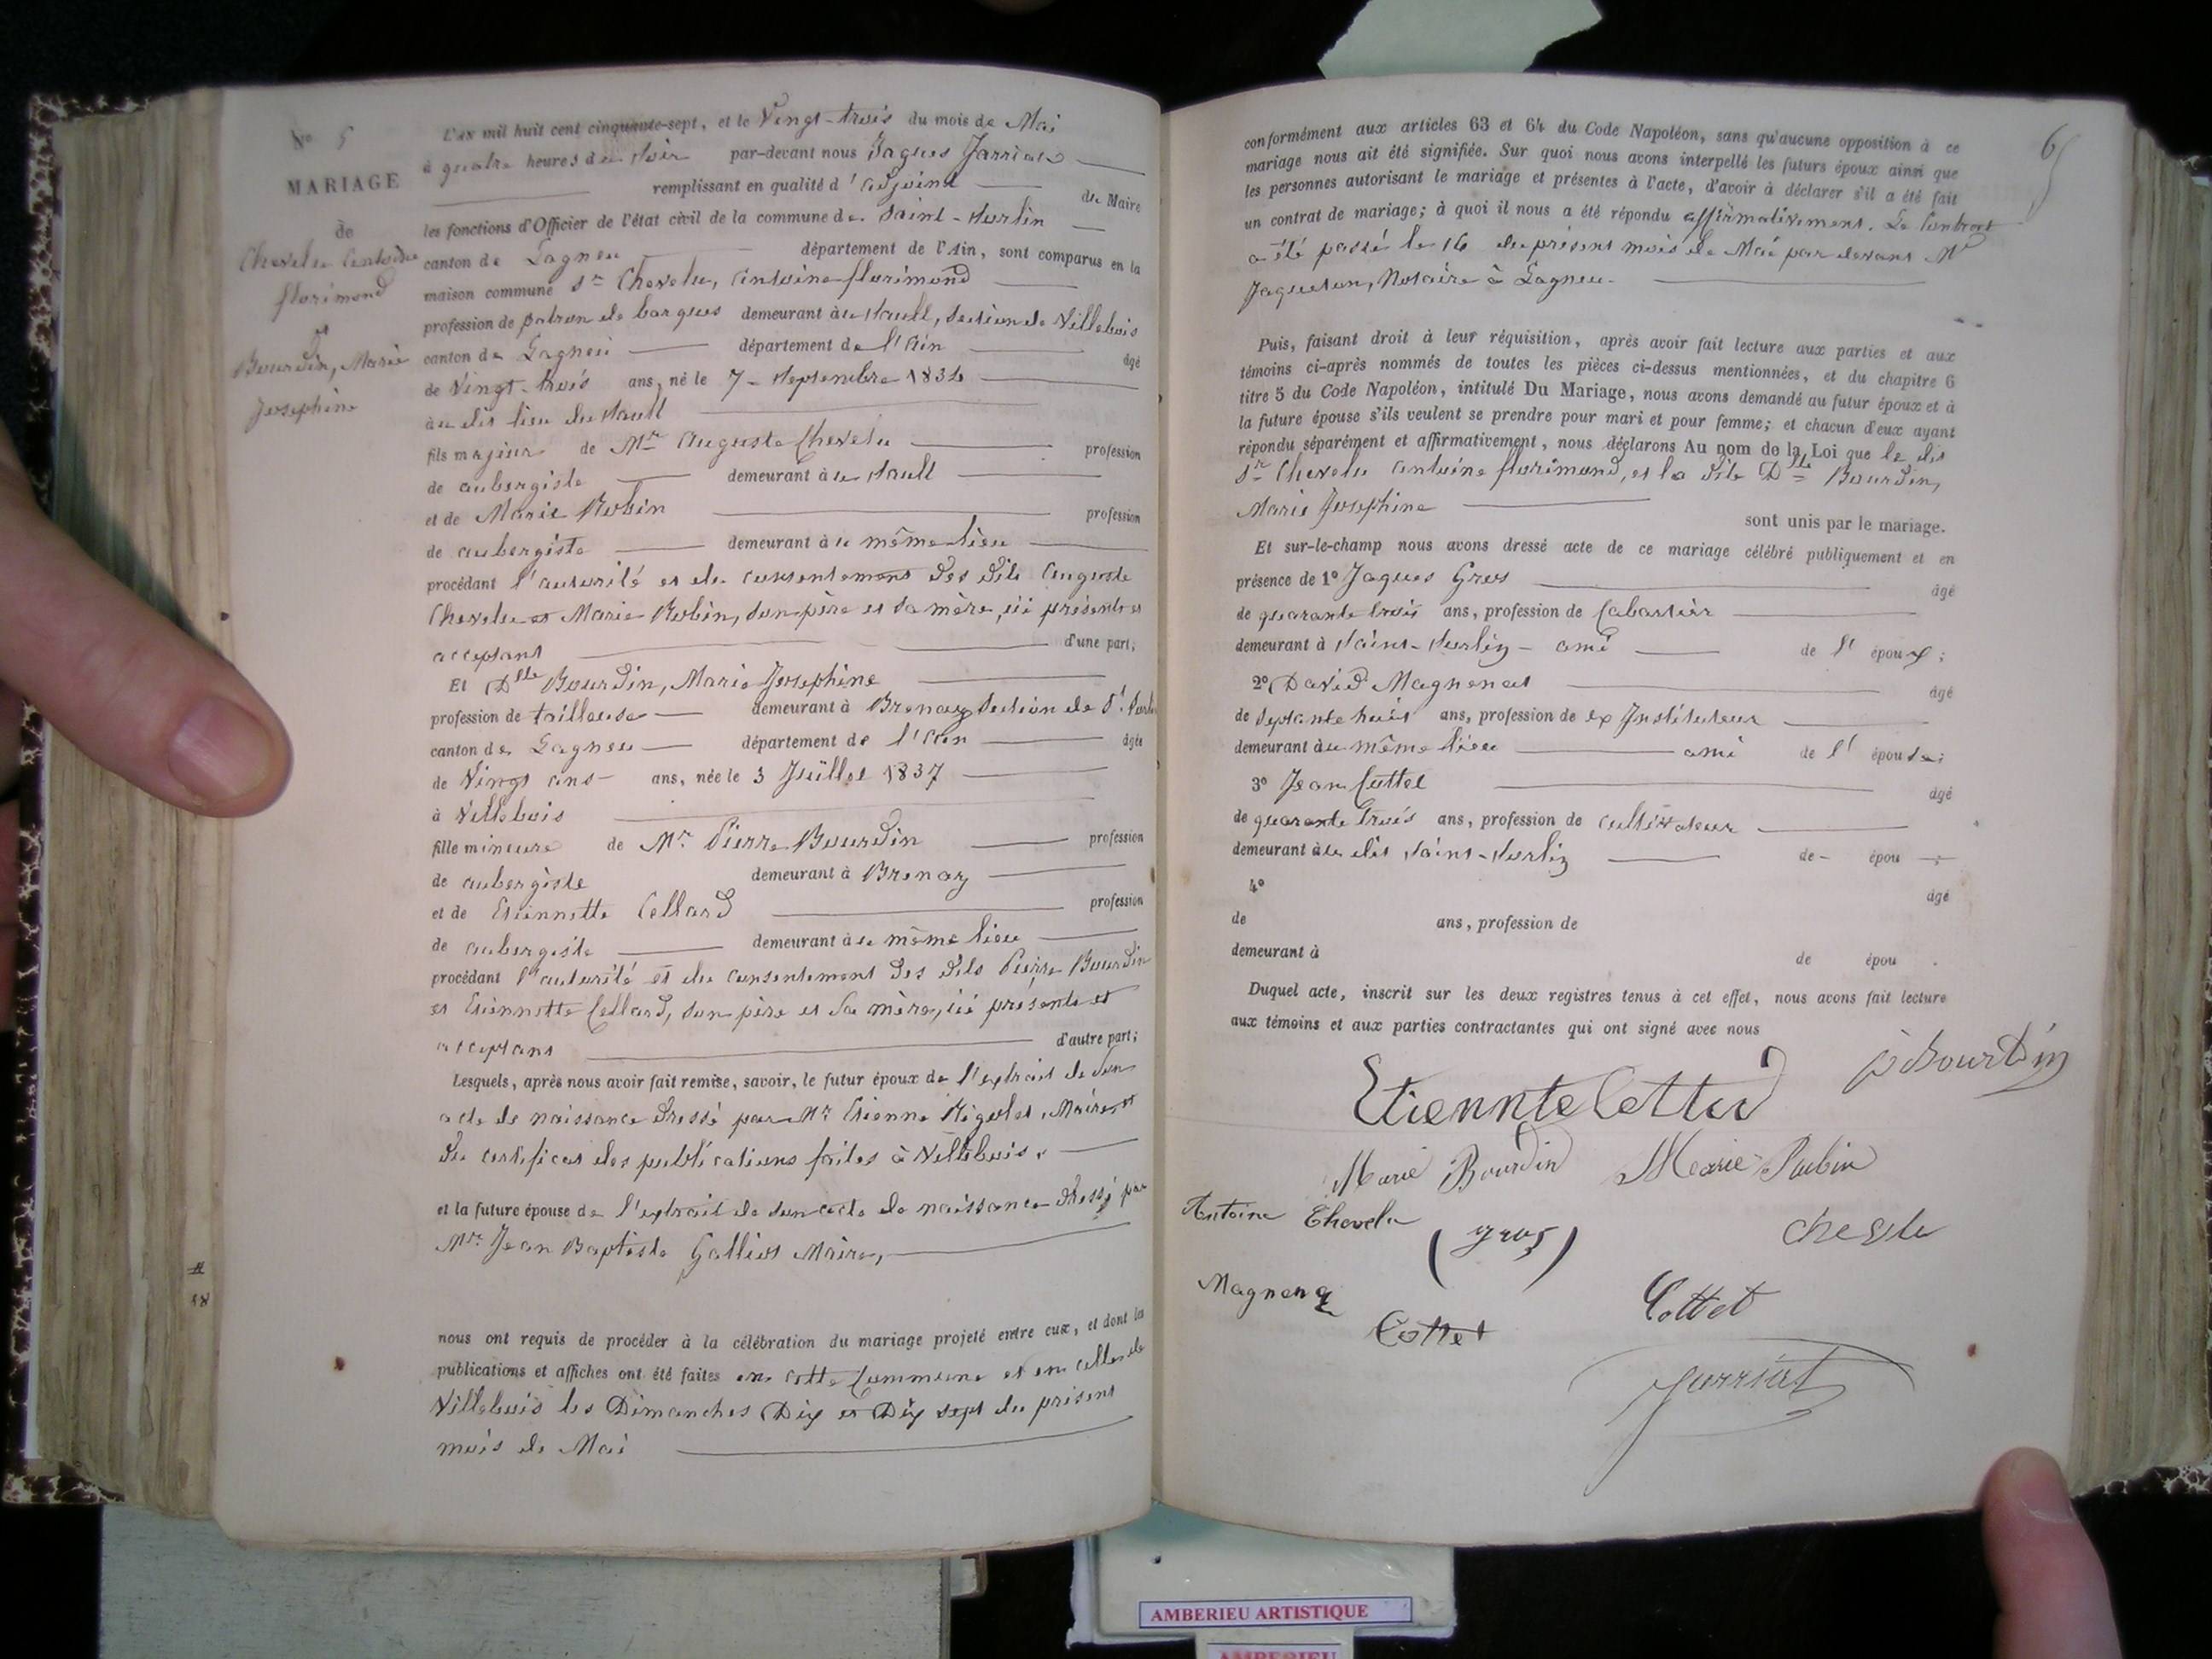 No 5
MARIAGE
de
Chevelu Antoine
florimond
et
Bourdin, Marie
Josephine
L'an mil huit cent cinquante-sept, et le Vingt-trois du mois de Mai
à quatre heures du Soir par-devant nous Jaques Jarriat
remplissant en qualité d'adjoint du Maire
les fonctions d'Officier de l'état civil de la commune de Saint-Sorlin
canton de Lagneu département de l'Ain, sont comparus en la
maison commune Sr Chevelu, Antoine florimond
profession de patron de barques demeurant au Sault, Section de Villebois
canton de Lagneu département de l'Ain âgé
de Vingt-trois ans, né le 7 Septembre 1834
au dit lieu du Sault
fils majeur de Mr Auguste Chevelu profession
de aubergiste demeurant au Sault
et de Marie Robin profession
de aubergiste demeurant au même lieu
procédant l'autorité et du consentement des dits Auguste
Chevelu et Marie Robin, son père et sa mère, ici présents et
acceptant d'une part;
Et Dlle Bourdin, Marie Josephine
profession de tailleuse demeurant à Brenaz Section de St Sorlin
canton de Lagneu département de l'Ain âgée
de Vingt ans ans, née le 3 Juillet 1837
à Villebois
fille mineure de Mr Pierre Bourdin profession
de aubergiste demeurant à Brenaz
et de Etiennette Cellard profession
de aubergiste demeurant au même lieu
procédant l'autorité et du consentement des dits Pierre Bourdin
et Etiennette Cellard, son père et sa mère, ici présents et
acceptans d'autre part;
Lesquels, après nous avoir fait remise, savoir, le futur époux de l'extrait de son
acte de naissance dressé par Mr Etienne Rigolet, Maire, et
du certificat des publications faites à Villebois.
et la future épouse de l'extrait de son acte de naissance dressé par
Mr Jean Baptiste Galliot Maire,
18
nous ont requis de procéder à la célébration du mariage projeté entre eux, et dont les
publications et affiches ont été faites en cette Commune et en celle de
Villebois les Dimanches Dix et Dix sept du présent
mois de Mai
6
conformément aux articles 63 et 64 du Code Napoléon, sans qu'aucune opposition à ce
mariage nous ait été signifiée. Sur quoi nous avons interpellé les futurs époux ainsi que
les personnes autorisant le mariage et présentes à l'acte, d'avoir à déclarer s'il a été fait
un contrat de mariage; à quoi il nous a été répondu affirmativement. Le Contrat
a été passé le 16 du présent mois de Mai par devant Me
Jaqueson, Notaire à Lagneu.
Puis, faisant droit à leur réquisition, après avoir fait lecture aux parties et aux
témoins ci-après nommés de toutes les pièces ci-dessus mentionnées, et du chapitre 6
titre 5 du Code Napoléon, intitulé Du Mariage, nous avons demandé au futur époux et à
la future épouse s'ils veulent se prendre pour mari et pour femme; et chacun d'eux ayant
répondu séparément et affirmativement, nous déclarons Au nom de la Loi que le dit
Sr Chevelu Antoine florimond, et la dite Dlle Bourdin,
Marie Josephine
sont unis par le mariage.
Et sur-le-champ nous avons dressé acte de ce mariage célébré publiquement et en
présence de 1º Jaques Gros âgé
de quarante trois ans, profession de Cabartier
demeurant à Saint-Sorlin ami de l'époux;
2º David Magnenat âgé
de Septante huit ans, profession de ex Instituteur
demeurant au même lieu ami de l'épouse;
3º Jean Cottet âgé
de quarante trois ans, profession de cultivateur
demeurant au dit Saint-Sorlin de - épou - ;
4º âgé
de ans, profession de
demeurant à de épou .
Duquel acte, inscrit sur les deux registres tenus à cet effet, nous avons fait lecture
aux témoins et aux parties contractantes qui ont signé avec nous
p Bourdin
Marie Bourdin Marie Robin
Antoine Chevelu (gros) chevelu
Cottet
Cottet
Jarriat
AMBERIEU ARTISTIQUE
AMBERIEU